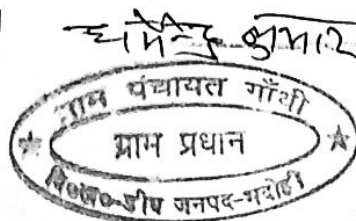 धर्मेन्द्र कुमार
ग्राम पंचायत गाँथी
ग्राम प्रधान
वि०ख०-डीघ जनपद-भदोही